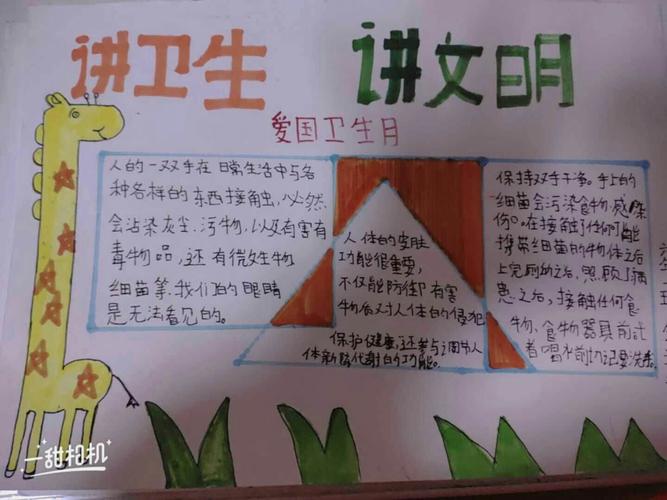 讲卫生 讲文明
爱国卫生月
人的一双手在 日常生活中与各
种各样的东西接触,必然
会沾染灰尘、污物,以及有害有
毒物品,还有微生物
细菌等.我们的眼睛
是无法看见的。
人体的皮肤
功能很重要,
不仅能防御有害
物质对人体的侵犯
保护健康,还参与调节人
体新陈代谢的功能。
保持双手干净。手上的
细菌会污染食物,感染
伤口。在接触了任何可能
携带细菌的物体之后
上完厕所之后,照顾了病
患之后,接触任何食
物、食物器具前或
者喝水前切记要洗手。
一甜相机